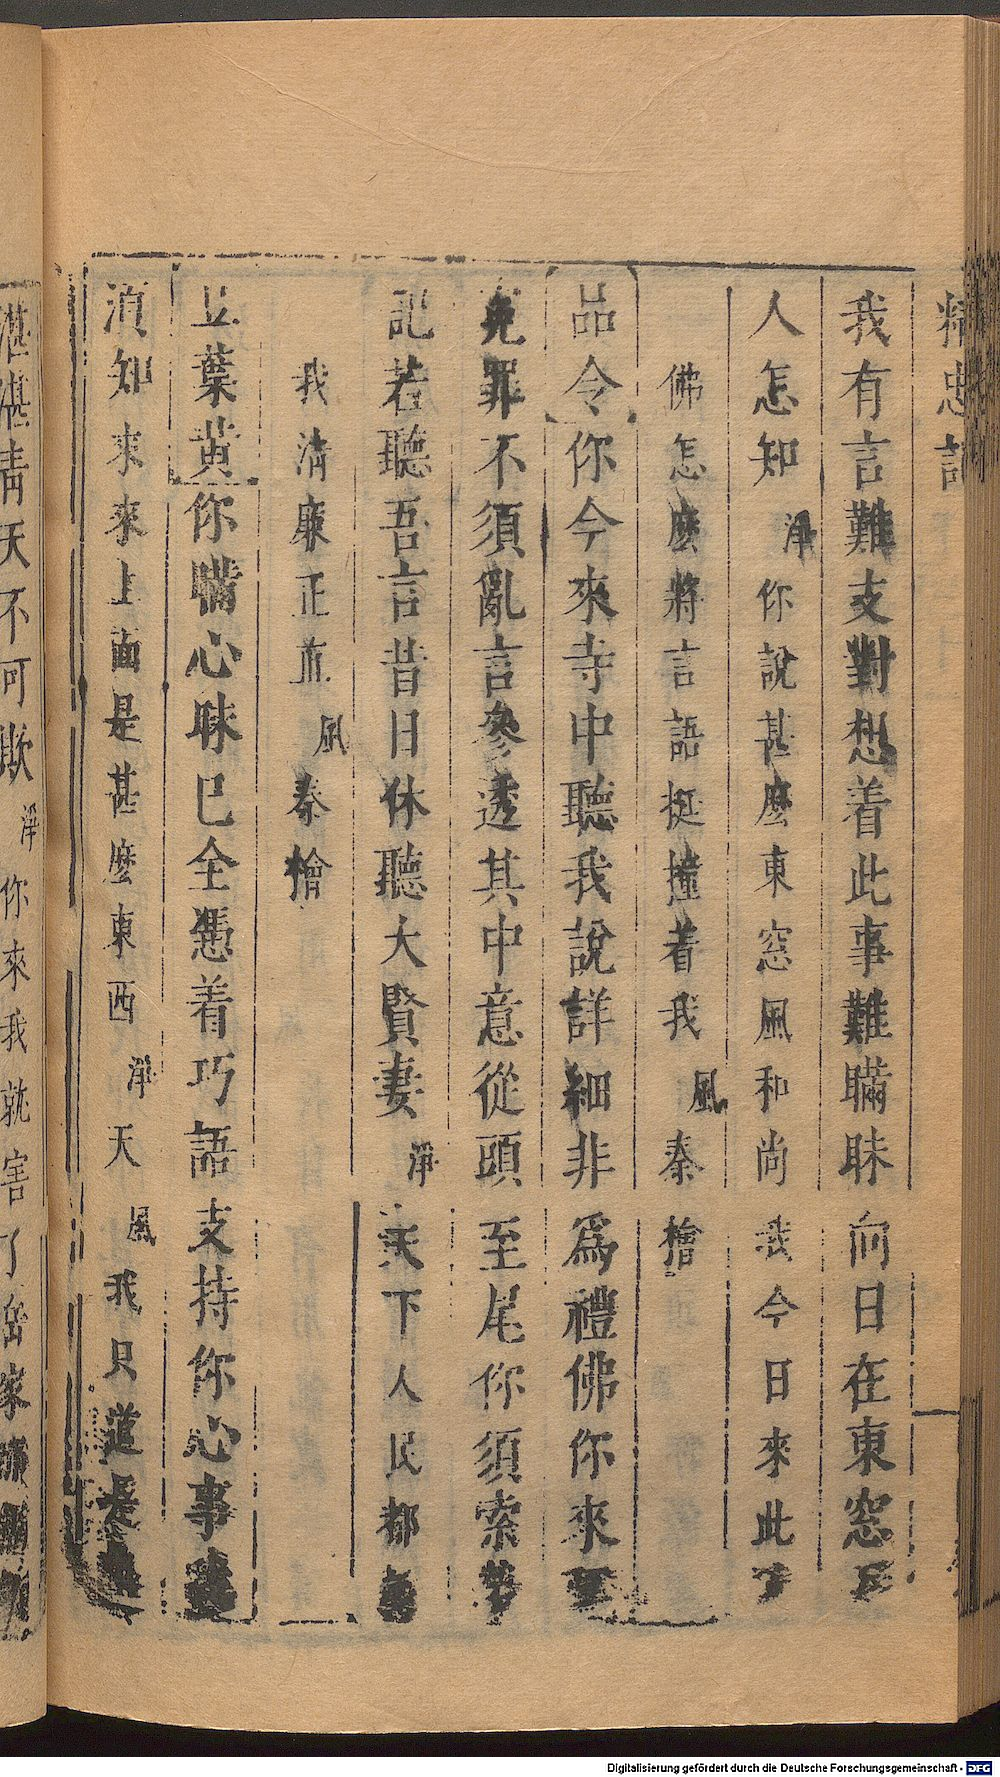 精忠記
我有言難支對想着此事難瞞昧向日在東窓
人怎知淨你說甚麼東窓風和尚我今日來此
佛怎麼將言語挺撞着我風秦檜
品令你今來寺中聽我說詳細非爲禮佛你來
免罪不須亂言參透其中意從頭至尾你須索
記若聽吾言昔日休聽大賢妻淨天下人民都
我清廉正直風秦檜
五葉黃你嘴心昧已全憑着巧語支持你心事
須知來來上面是甚麼東西淨天風我只道是
湛湛青天不可欺淨你來我就害了岳家
Digitalisierung gefördert durch die Deutsche Forschungsgemeinschaft - DFG